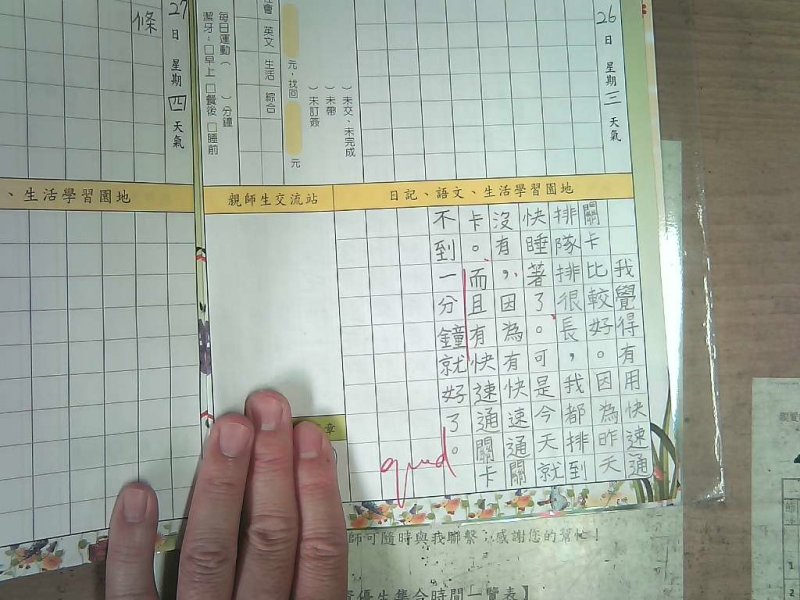 26日 星期三 天氣
日記、語文、生活學習園地
我覺得有用快速通
關卡比較好。因為昨天
排隊排很長，我都排到
快睡著了。可是今天就
沒有，因為有快速通關
卡。而且有快速通關卡
不到一分鐘就好了。
good
）未交、未完成
）未帶
）未訂簽
元，找回
元
英文 生活 綜合
每日運動（ ）分鐘
潔牙：□早上 □餐後 □睡前
親師生交流站
章
27日 星期四 天氣
條
、生活學習園地
師可隨時與我聯繫，感謝您的幫忙！
優生集合時間一覽表】
親愛
1
2